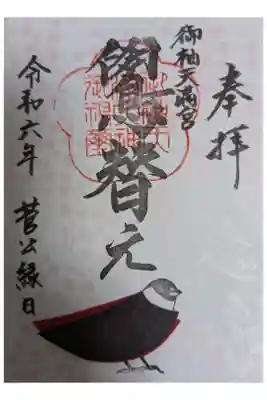 奉拝
御袖天満宮
鷽替え
令和六年 菅公縁日